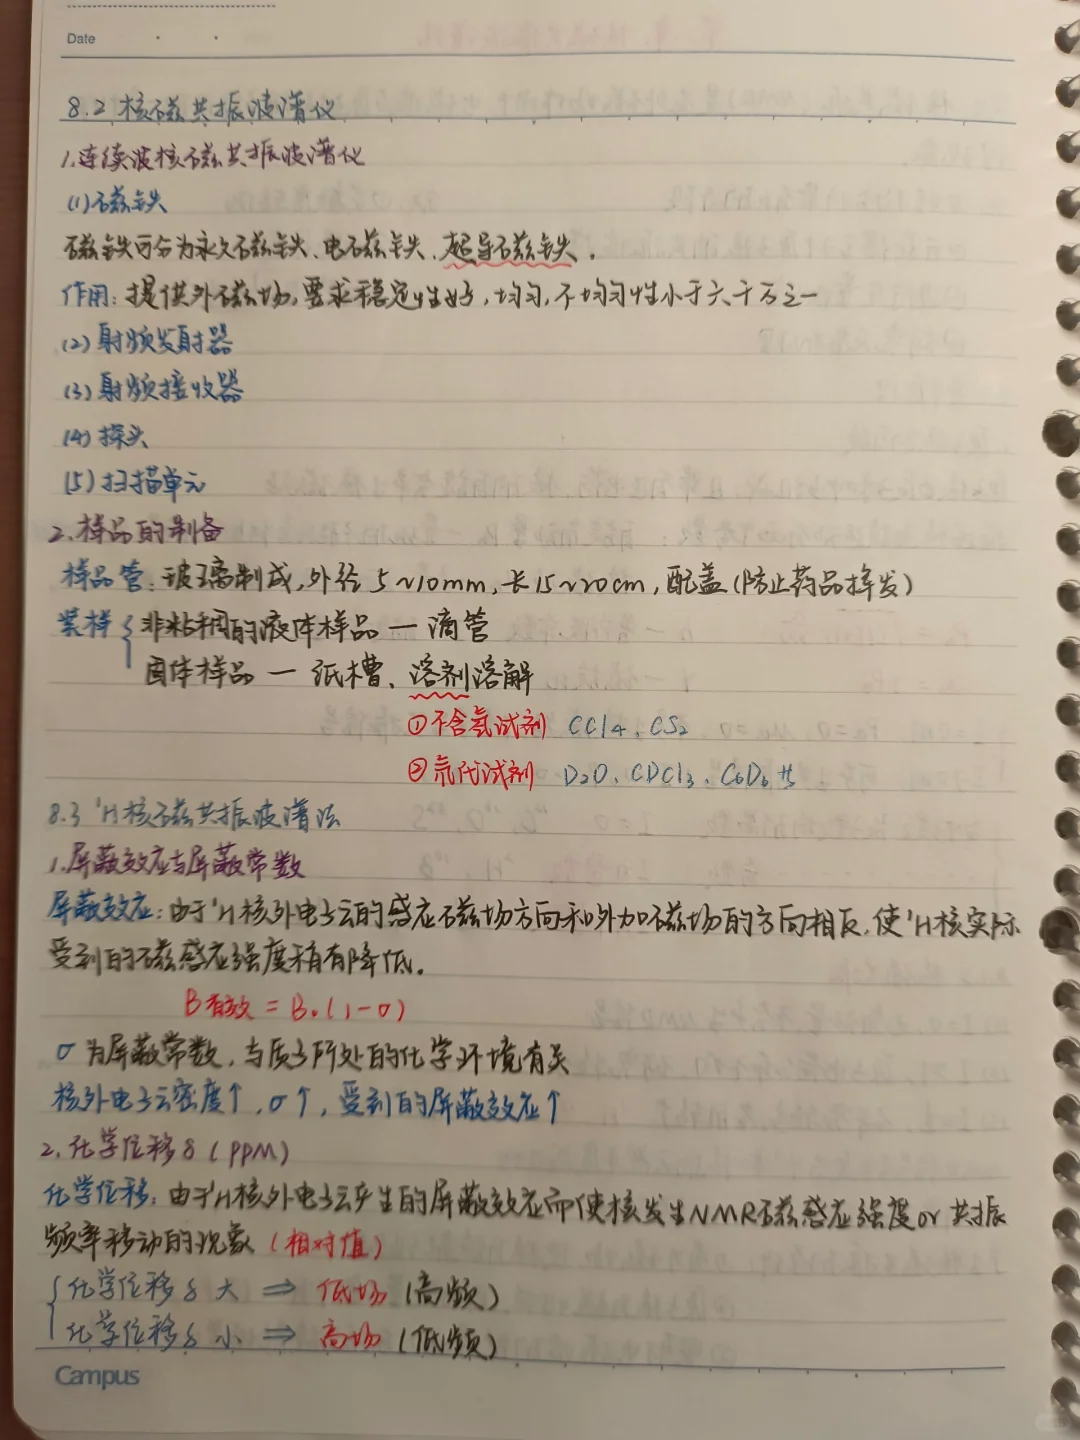 Date
8.2 核磁共振波谱仪
1.连续波核磁共振波谱仪
(1)磁铁
磁铁可分为永久磁铁、电磁铁、超导磁铁.
作用:提供外磁场,要求稳定性好,均匀,不均匀性小于六千万之一
(2)射频发射器
(3)射频接收器
(4)探头
(5)扫描单元
2.样品的制备
样品管:玻璃制成,外径5~10mm,长15~20cm,配盖(防止药品挥发)
装样 { 非粘稠的液体样品 — 滴管
固体样品 — 纸槽、溶剂溶解
①不含氢试剂 CCl4、CS2
②氘代试剂 D2O、CDCl3、C6D6 代
8.3 ¹H核磁共振波谱法
1.屏蔽效应与屏蔽常数
屏蔽效应:由于¹H核外电子云的感应磁场方向和外加磁场的方向相反,使¹H核实际
受到的磁感应强度稍有降低.
B有效 = B。(1-σ)
σ为屏蔽常数,与质子所处的化学环境有关
核外电子云密度↑,σ↑,受到的屏蔽效应↑
2.化学位移δ(PPM)
化学位移:由于¹H核外电子云产生的屏蔽效应而使核发生NMR磁感应强度or共振
频率移动的现象(相对值)
{ 化学位移δ 大 ⇒ 低场(高频)
化学位移δ 小 ⇒ 高场(低频)
Campus